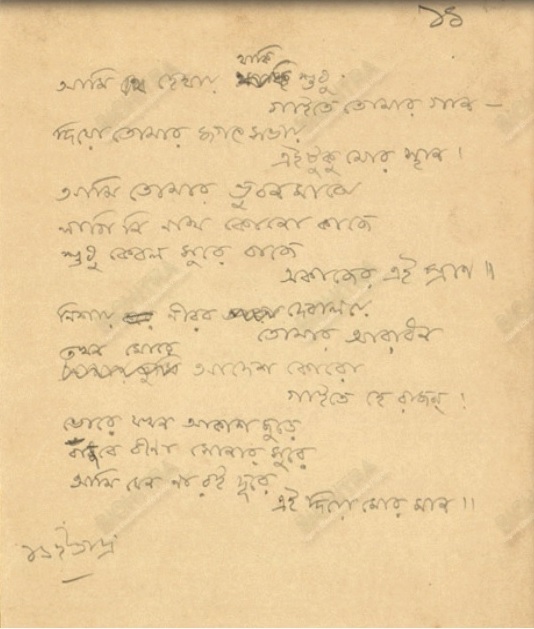 ১৯
থাকি
আমি হেথায় শুধু
গাইতে তোমার গান —
দিয়ো তোমার জগৎ সভায়
এইটুকু মোর স্থান।
আমি তোমার ভুবন মাঝে
লাগি নি নাথ কোনো কাজে
শুধু কেবল সুরে বাজে
অকাজের এই প্রাণ॥
নিশায় নীরব দেবালয়ে
তোমার আরাধন
তখন মোরে
আদেশ কোরো
গাইতে হে রাজন্।
ভোরে যখন আকাশ জুড়ে
বাজবে বীণা সোনার সুরে
আমি যেন না রই দূরে
এই দিয়ো মোর মান॥